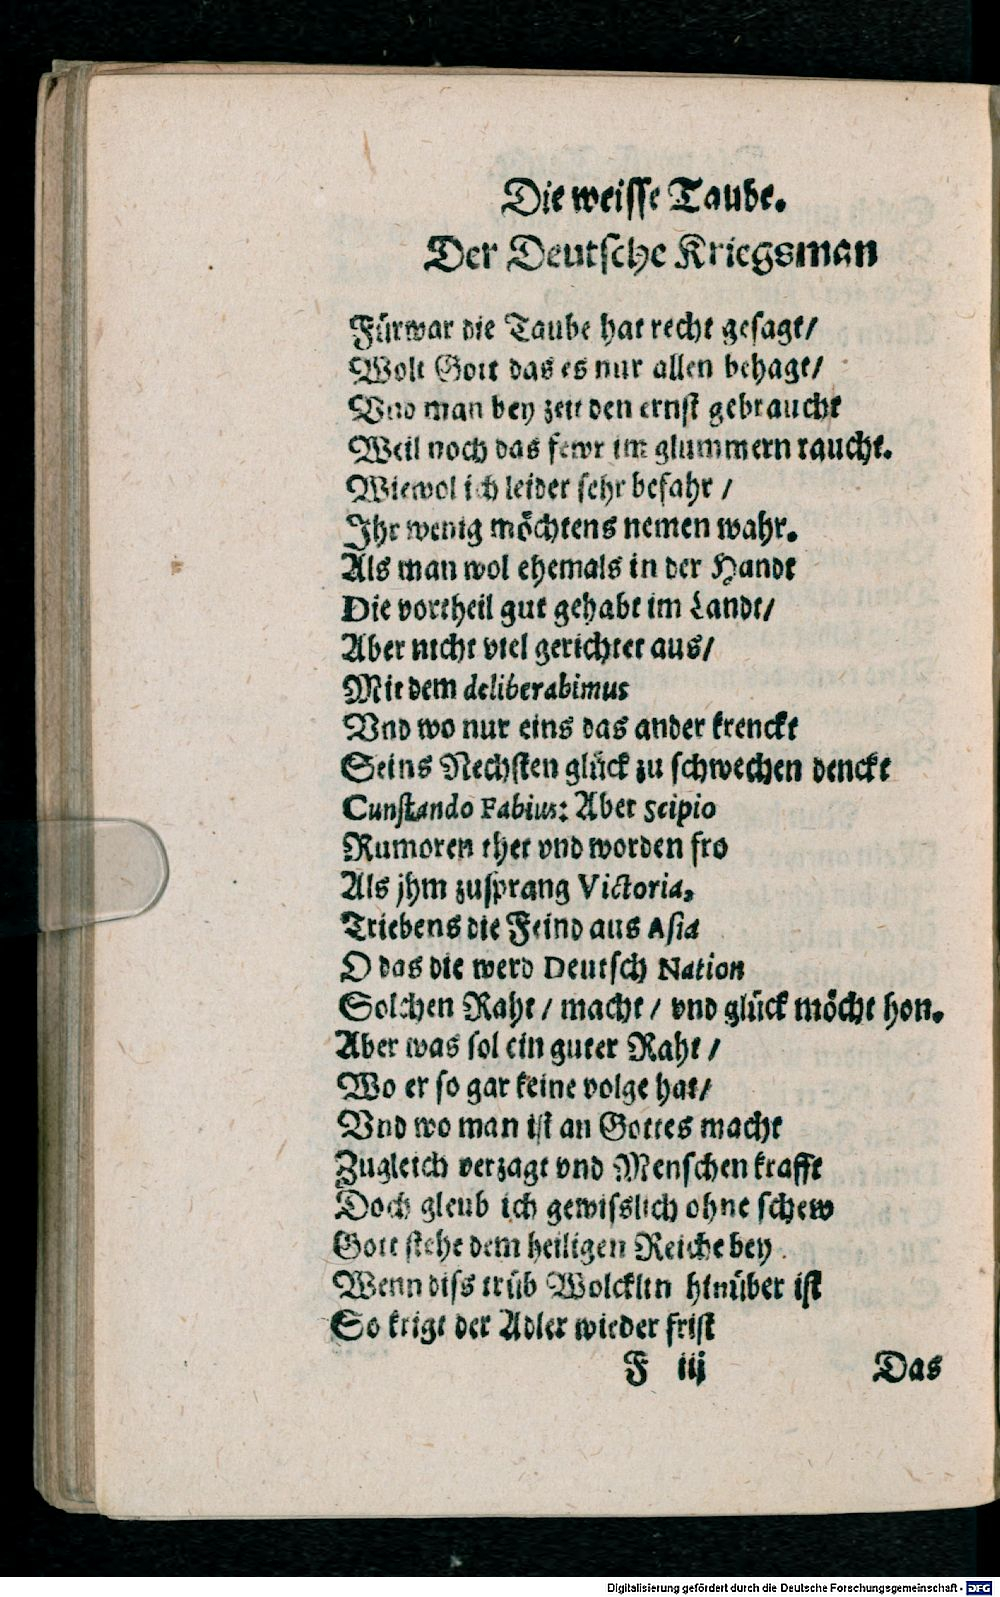 Die weisse Taube.
Der Deutsche Kriegsman
Fürwar die Taube hat recht gesagt/
Wolt Gott das es nur allen behagt/
Vnd man bey zeit den ernst gebraucht
Weil noch das fewr im glummern raucht.
Wiewol ich leider sehr befahr /
Ihr wenig möchtens nemen wahr.
Als man wol ehemals in der Handt
Die vortheil gut gehabt im Landt/
Aber nicht viel gerichtet aus/
Mit dem deliberabimus
Vnd wo nur eins das ander krenckt
Seins Nechsten glück zu schwechen denckt
Cunstando Fabius: Aber Scipio
Rumoren thet vnd worden fro
Als jhm zusprang Victoria,
Triebens die Feind aus Asia
O das die werd Deutsch Nation
Solchen Raht / macht / vnd glück möcht hon.
Aber was sol ein guter Raht /
Wo er so gar keine volge hat/
Vnd wo man ist an Gottes macht
Zugleich verzagt vnd Menschen krafft
Doch gleub ich gewisslich ohne schew
Gott stehe dem heiligen Reiche bey.
Wenn diss trüb Wolcklin hinüber ist
So krigt der Adler wieder frist
F iij Das
Digitalisierung gefördert durch die Deutsche Forschungsgemeinschaft - DFG